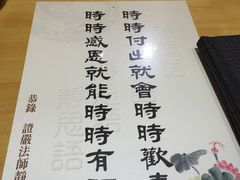 時時付出就會時時歡喜
時時感恩就能時時有
恭錄 證嚴法師靜
靜思語